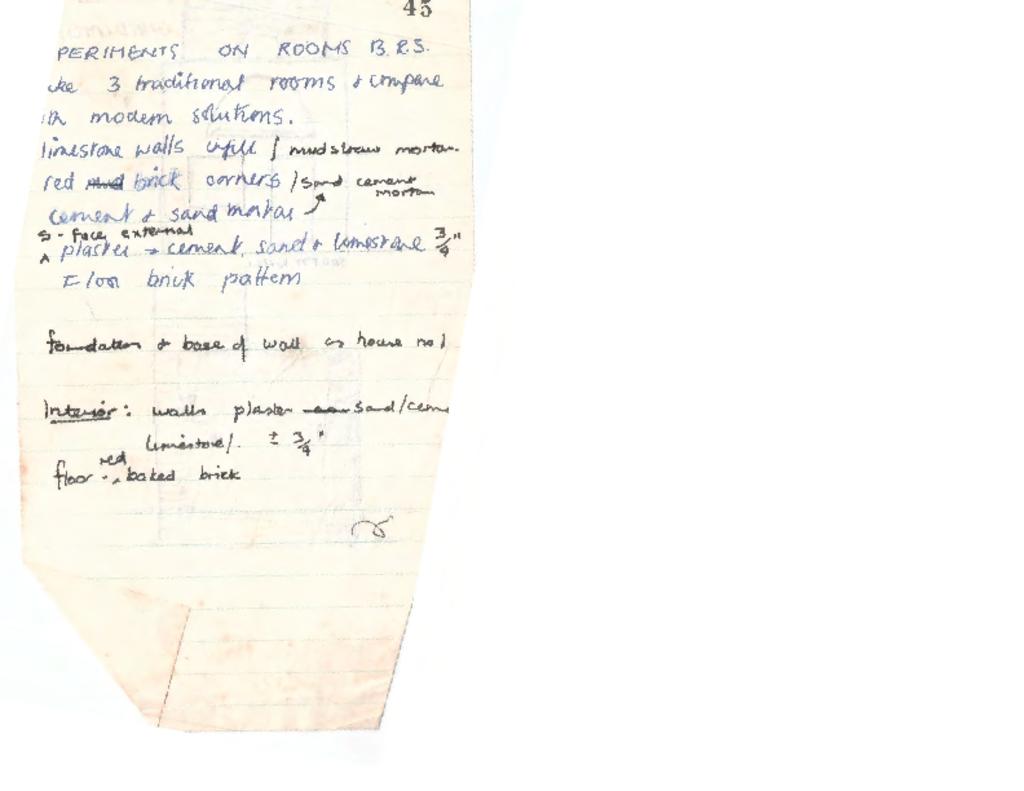 45
PERIMENTS ON ROOMS B.R.S.
ke 3 traditional rooms & compare
th modern solutions.
limestone walls infill / mud straw mortar.
red mud brick corners / sand cement mortar
cement & sand mortar
S - face external
^ plaster → cement, sand & limestone 3/4"
Floor brick pattern
foundation & base of wall as house no 1
Interior: walls plaster sand/cem
limestone/. ± 3/4"
red
floor - ^ baked brick